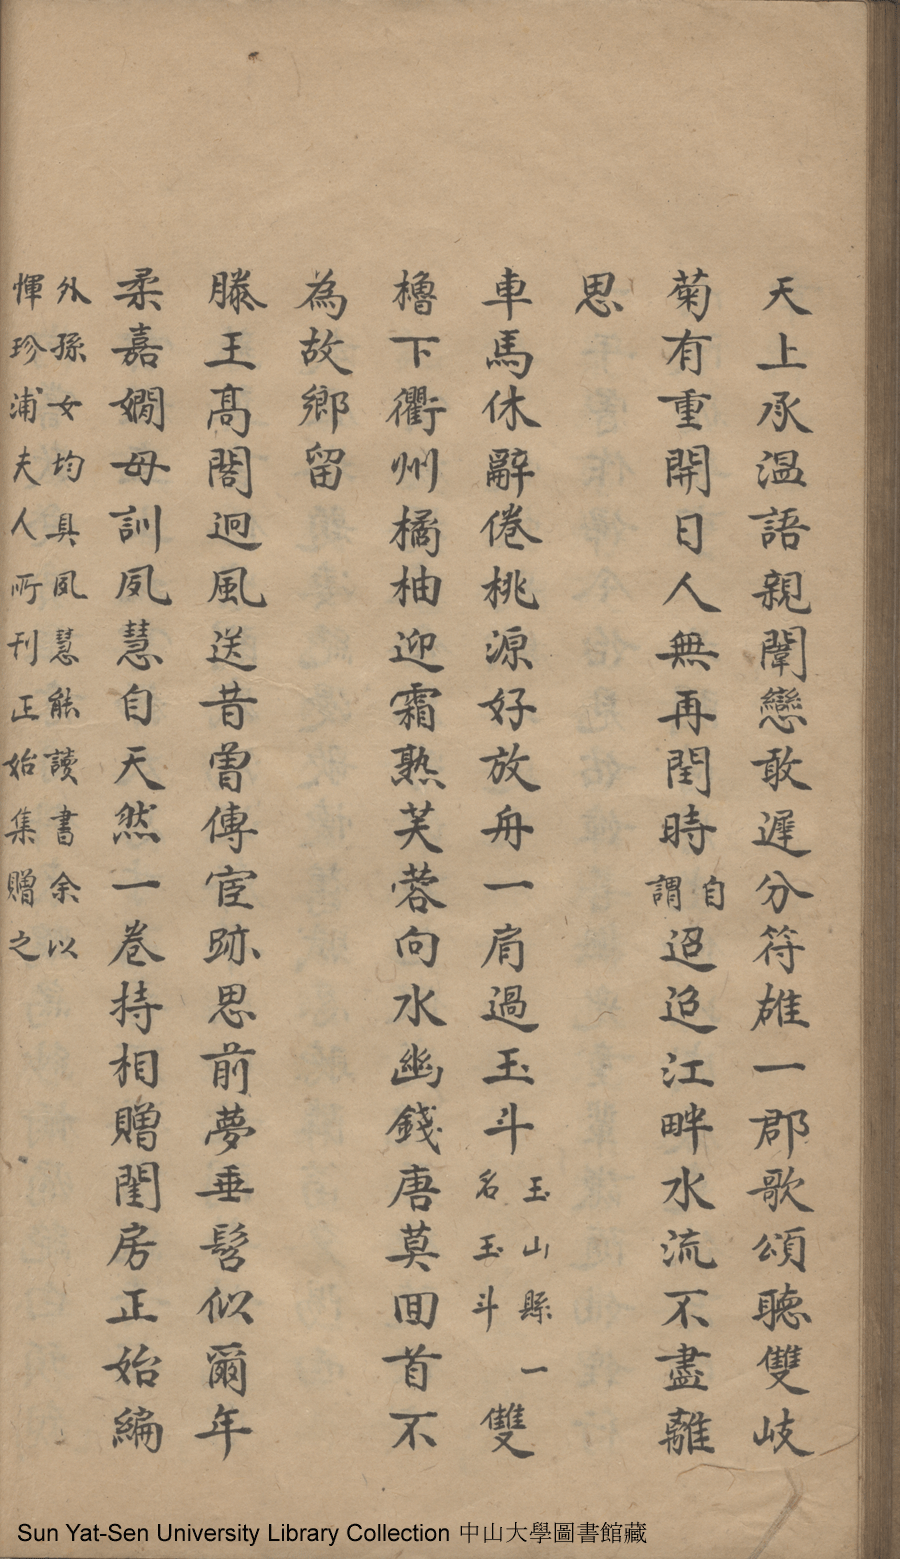 天上承温語親闈戀敢遲分符雄一郡歌頌聽雙岐
菊有重開日人無再閏時自謂迢迢江畔水流不盡離
思
車馬休辭倦桃源好放舟一肩過玉斗玉山縣一名玉斗雙
櫓下衢州橘柚迎霜熟芙蓉向水幽錢唐莫回首不
為故鄉留
滕王高閣迥風送昔曾傳宦跡思前夢垂髫似爾年
柔嘉嫺母訓夙慧自天然一卷持相贈閨房正始編
外孫女均具夙慧能讀書余以
惲珍浦夫人所刊正始集贈之
Sun Yat-Sen University Library Collection 中山大學圖書館藏